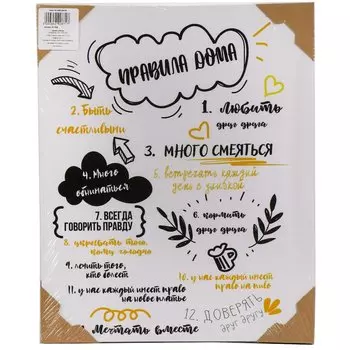 ПРАВИЛА ДОМА
1. Любить
друг друга
2. Быть
счастливыми
3. МНОГО СМЕЯТЬСЯ
4. Много
обниматься
5. встречать каждый
день с улыбкой
6. кормить
друг друга
7. ВСЕГДА
ГОВОРИТЬ ПРАВДУ
8. укрывать того,
кому холодно
9. лечить того,
кто болеет
10. у нас каждый имеет
право на пиво
11. у нас каждый имеет право
на новое платье
12. ДОВЕРЯТЬ
друг другу
Мечтать вместе